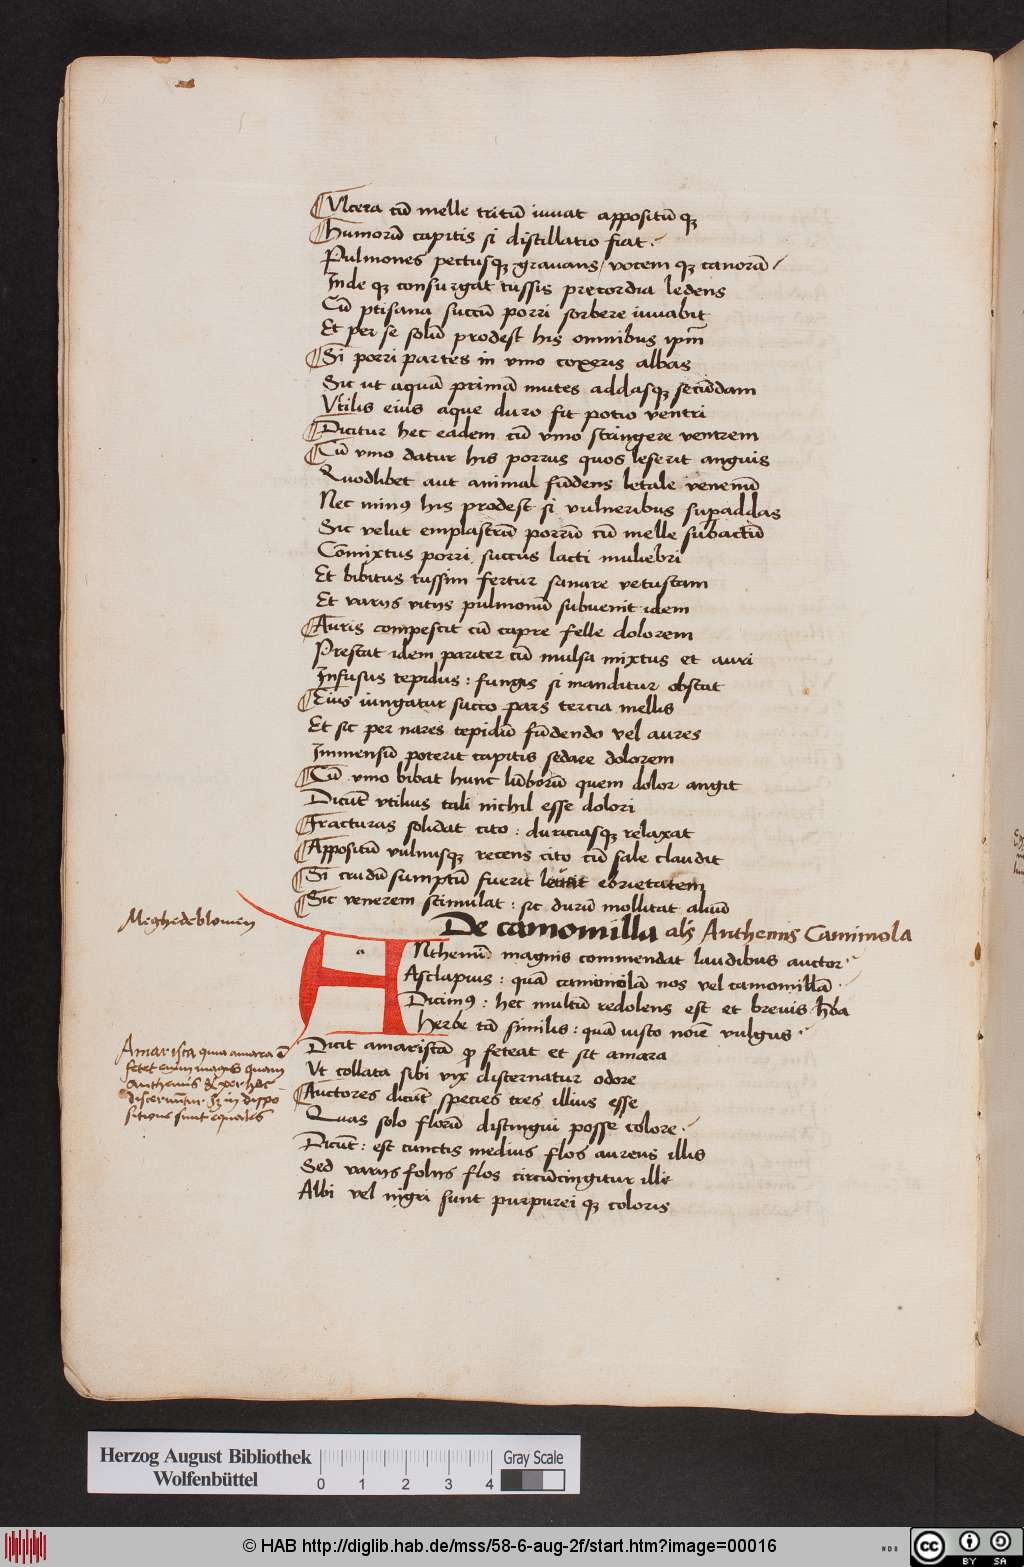 Ulcera cū melle tritū iuuat appositū qꝫ
Humorū capitis si distillatio fiat·
Pulmones pectusqꝫ grauans / vocem qꝫ canorā
Inde qꝫ consurgat tussis precordia ledens
Cū ptisana succū porri sorbere iuuabit
Et per se solū prodest his omnibus ipm̄
Si porri partes in vino coxeris albas
Sic ut aquā primā mutes addasqꝫ secūdam
Vtilis eius aque duro fit potio ventri
Dicitur hec eadem cū vino stringere ventrem
Cū vino datur his porrus quos leserit anguis
Quodlibet aut animal fūdens letale venenū
Nec minꝰ his prodest si vulneribus supaddas
Sic velut emplastrū porrū cū melle subactū
Comixtus porri succus lacti muliebri
Et bibitus tussim fertur sanare vetustam
Et varijs vitijs pulmonū subuenit idem
Auris compescit cū capre felle dolorem
Prestat idem pariter cū mulsa mixtus et auri
Infusus tepidus : fungis si manditur obstat
Eius iungatur succo pars tercia mellis
Et sic per nares tepidū fūdendo vel aures
Immensū poterit capitis sedare dolorem
Cū vino bibat hunc lūborū quem dolor angit
Dicūt vtilius tali nichil esse dolori
Fracturas solidat cito : duriciasqꝫ relaxat
Appositū vulnusqꝫ recens cito cū sale claudit
Si crudū sumptū fuerit ebrietatem
Sic venerem stimulat : sic durū mollitat aluū
Meghedeblomen
De camomilla als Anthemis Camimola
a
ANthemū magnis commendat laudibus auctor
Asclapius : quā camomolā nos vel camomillā·
Dicimꝰ : hec multū redolens est et breuis h̄ba
Herbe tā similis : quā iusto noīe vulgus
Dicit amariscā ꝙ feteat et sit amara
Vt collata sibi vix discernatur odore
Auctores dicūt species tres illius esse
Quas solo florū distingui posse colore·
Dicūt : est cunctis medius flos aureus illis
Sed varijs folijs flos circūcingitur ille
Albi vel nigri sunt purpurei qꝫ coloris
Amarisca quia amara ē
fetet enim magis quam
anthemis & per hec
discernūtur sꝫ in dispo
sitione sunt equales
Herzog August Bibliothek
Wolfenbüttel
0 1 2 3 4
Gray Scale
© HAB http://diglib.hab.de/mss/58-6-aug-2f/start.htm?image=00016
cc BY SA